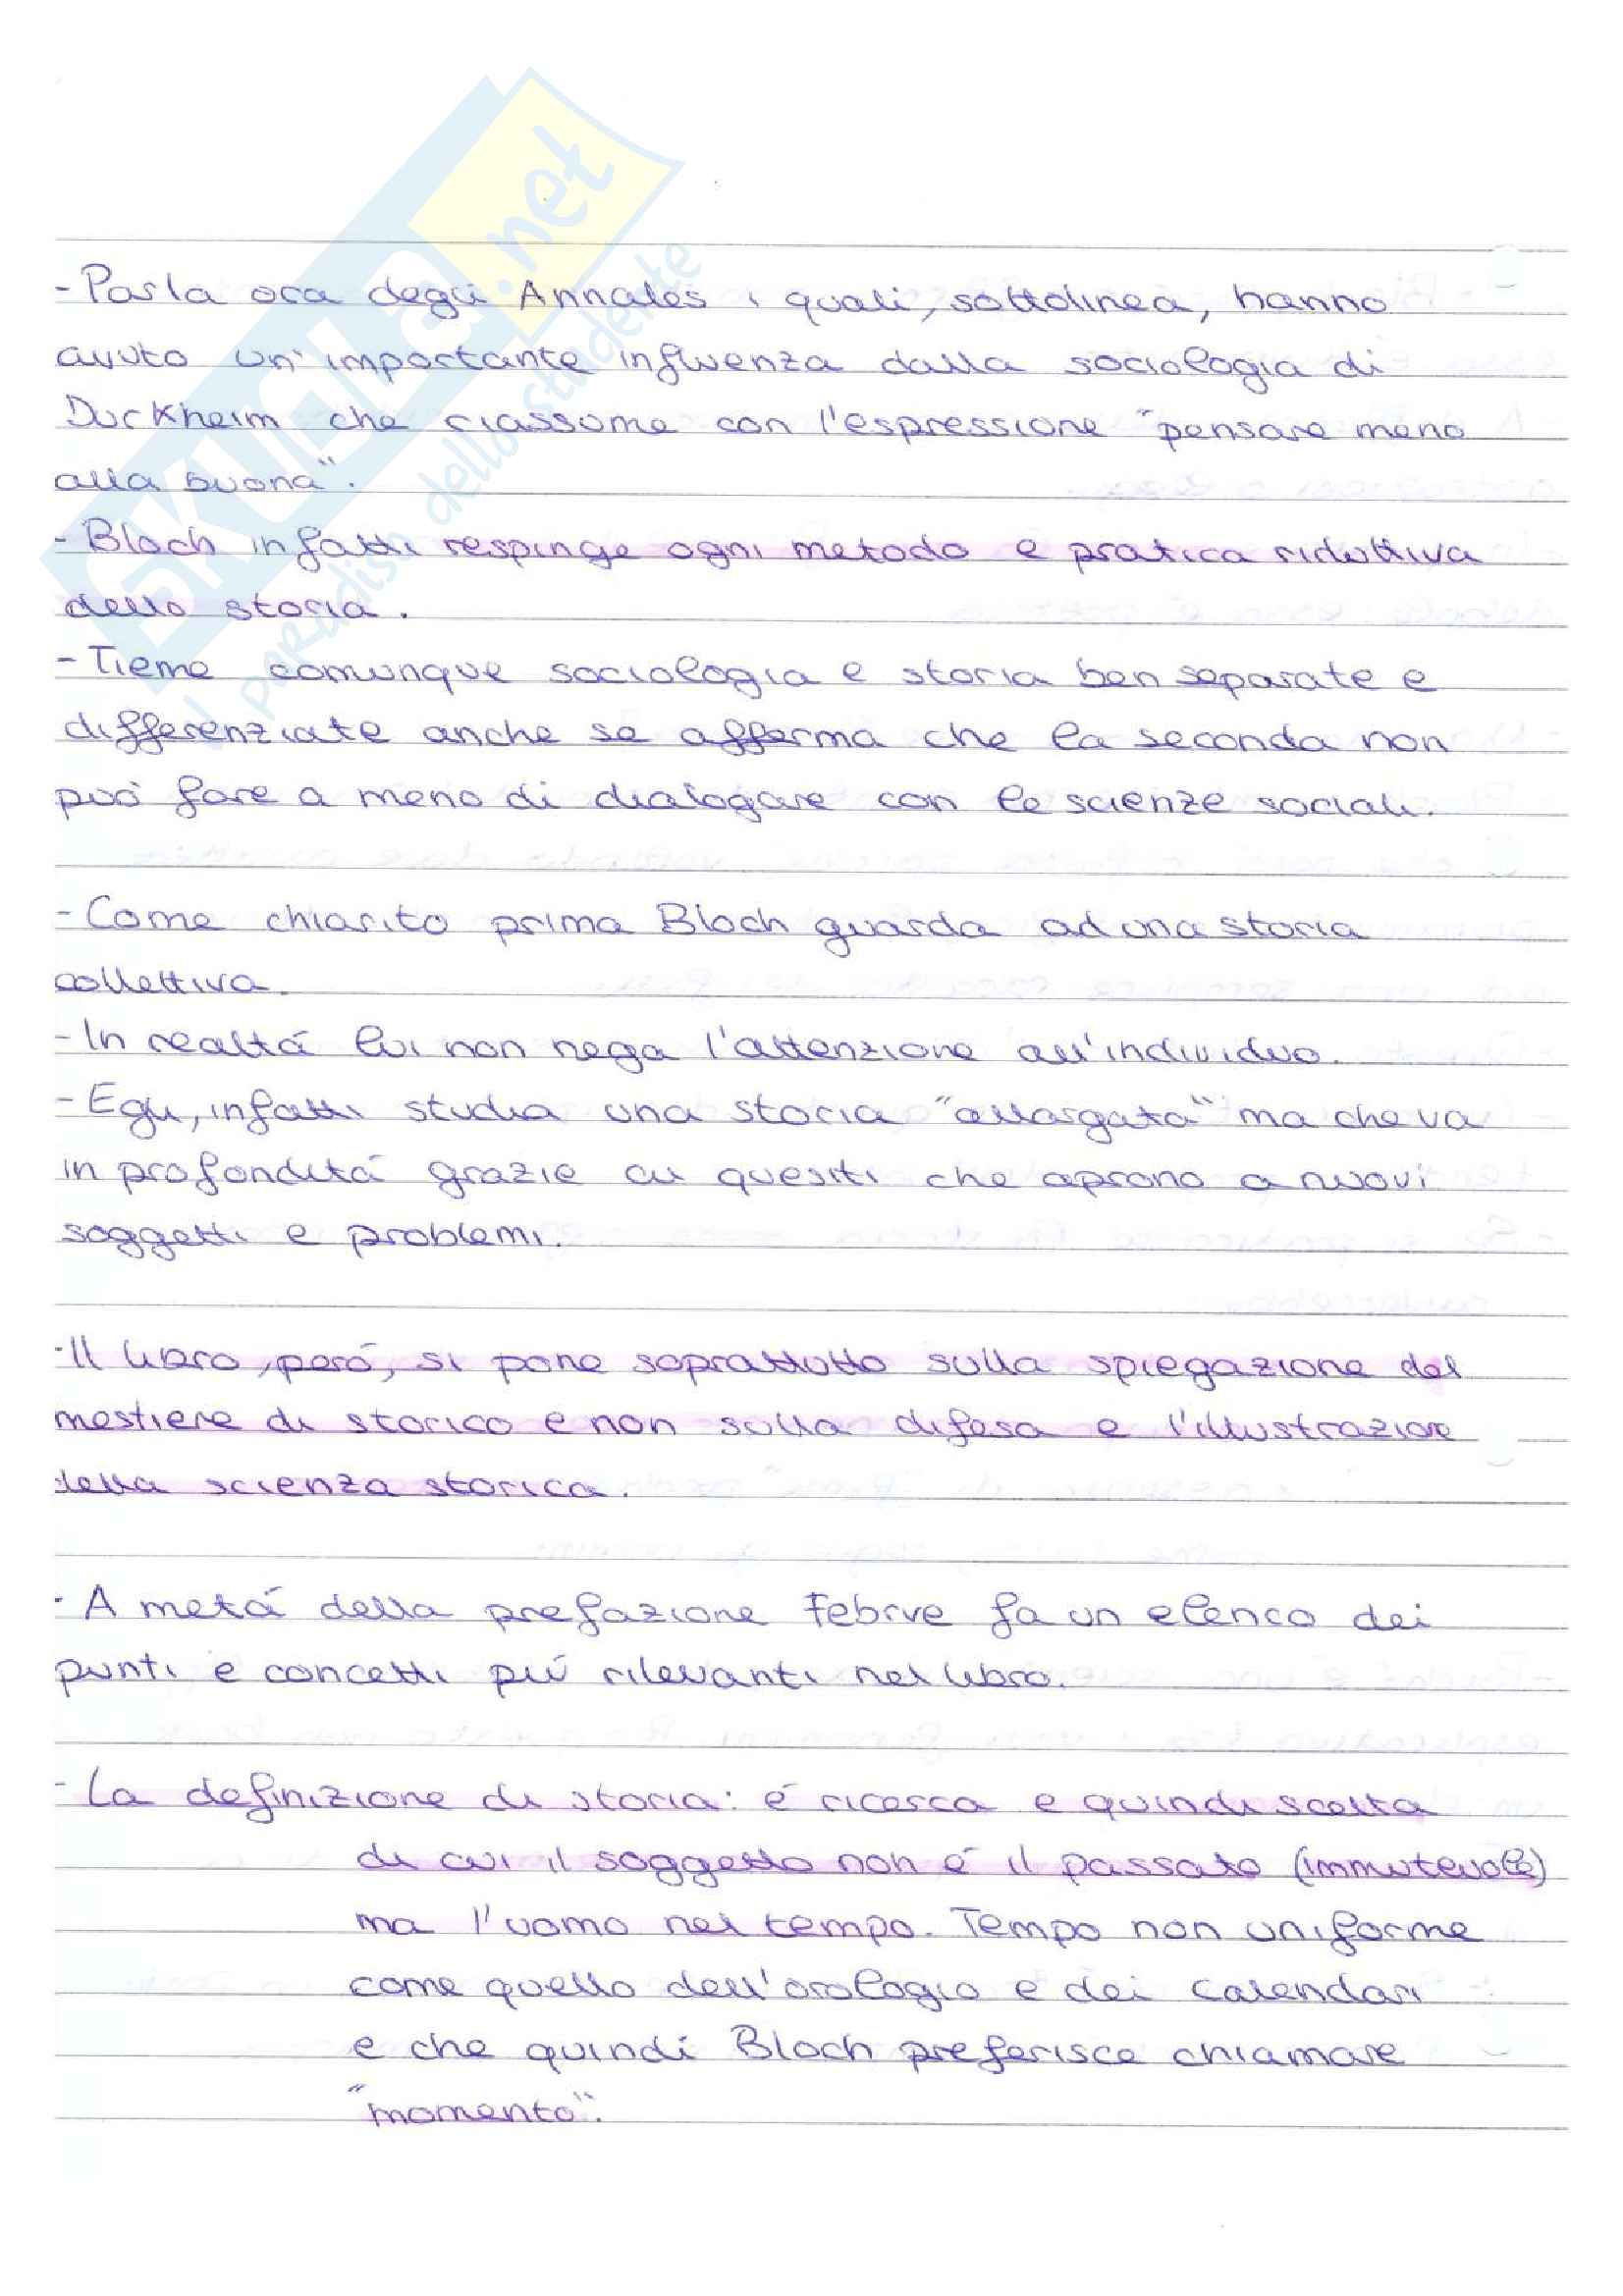 SKUOLA.net
il paradiso dello studente
- Parla ora degli Annales i quali, sottolinea, hanno
avuto un'importante influenza dalla sociologia di
Durkheim che riassume con l'espressione "pensare meno
alla buona".
- Bloch infatti respinge ogni metodo e pratica riduttiva
della storia.
- Tiene comunque sociologia e storia ben separate e
differenziate anche se afferma che la seconda non
può fare a meno di dialogare con le scienze sociali.
- Come chiarito prima Bloch guarda ad una storia
collettiva.
- In realtá lui non nega l'attenzione all'individuo.
- Egli, infatti studia una storia "allargata" ma che va
in profonditá grazie ai quesiti che aprono a nuovi
soggetti e problemi.
- Il libro, peró, si pone soprattutto sulla spiegazione del
mestiere di storico e non sulla difesa e l'illustrazione
della scienza storica.
- A metá della prefazione Febrve fa un elenco dei
punti e concetti piú rilevanti nel libro.
- La definizione di storia: é ricerca e quindi scelta
di cui il soggetto non é il passato (immutevole)
ma l'uomo nel tempo. Tempo non uniforme
come quello dell'orologio e dei calendari
e che quindi Bloch preferisce chiamare
"momento".